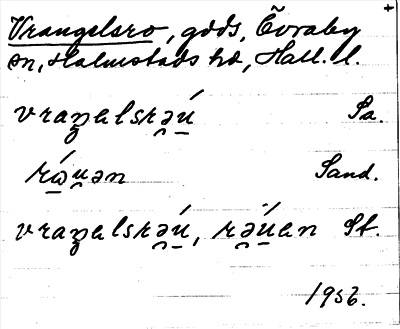 Vrangelsro, gods, Övraby
sn, Halmstads hd, Hall. l.
vraŋəlsrəú Sa.
rə́uən Sand.
vraŋəlsrəú, rəúən St.
1956.